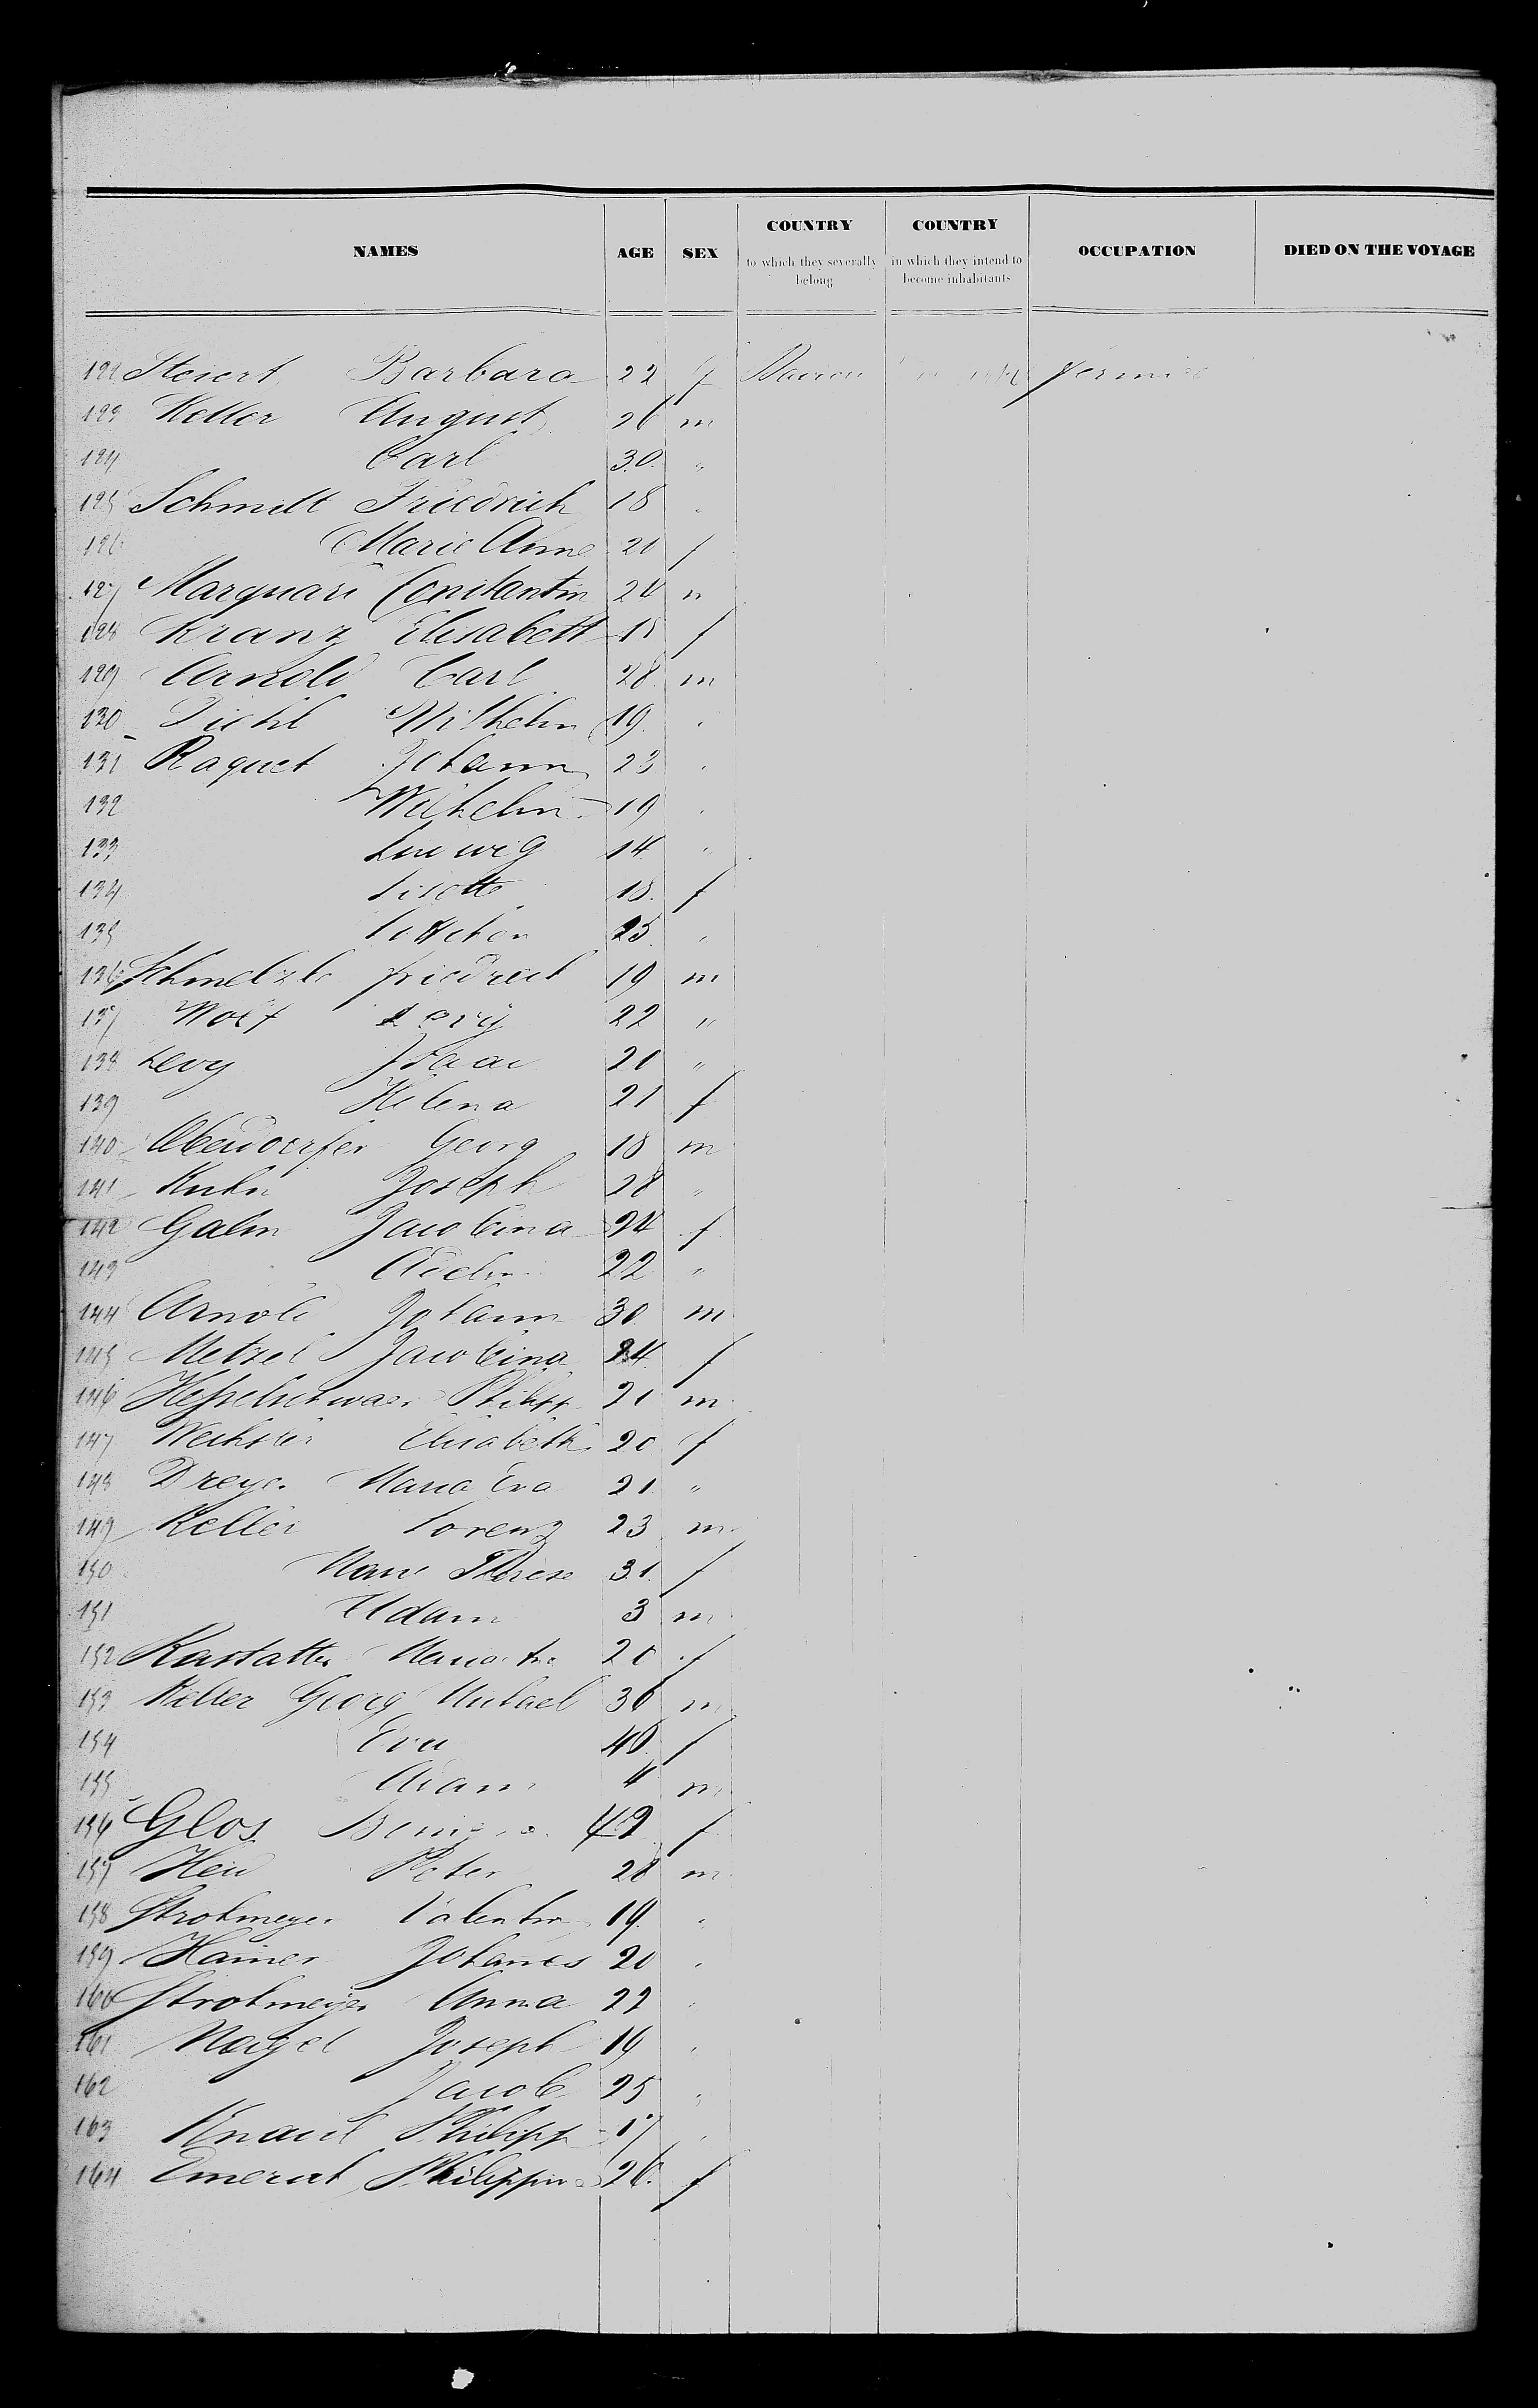 NAMES AGE SEX COUNTRY to which they severally belong COUNTRY in which they intend to become inhabitants OCCUPATION DIED ON THE VOYAGE
122 Steiert Barbara 22 f
123 Keller August 26 m
124 Carl 30 "
125 Schmitt Friedrich 18 "
126 Marie Anne 20 f
127 Marquart Constantin 24 m
128 Kranz Elisabeth 18 f
129 Arnold Carl 28 m
130 Diehl Wilhelm 19 "
131 Raquet Johann 23 "
132 Wilhelm 19 "
133 Ludwig 14 "
134 Lisette 18 f
135 25 "
136 Schmelzle Friedrich 19 m
137 Wolf 22 "
138 Levy Isaac 20 "
139 Helena 21 f
140 Georg 18 m
141 Kuhn Joseph 28 "
142 Galm Jacobina 24 f
143 22 "
144 Arnold Johann 30 m
145 Metzel Jacobina 24 f
146 Philipp 21 m
147 Elisabeth 20 f
148 Dreyer Maria Eva 21 "
149 Keller Lorenz 23 m
150 Marie Therese 31 f
151 Adam 3 m
152 Rastatter 20 f
153 Keller Georg Michael 36 m
154 Eva 40 f
155 Adam 4 m
156 Glos 42 f
157 Heid Peter 28 m
158 Strohmeyer Valentin 19 "
159 Hamer Johannes 20 "
160 Strohmeyer Anna 22 "
161 Nagel Joseph 19 "
162 Jacob 25 "
163 Knaul Philipp 17 "
164 Emerich Philippine 26 f